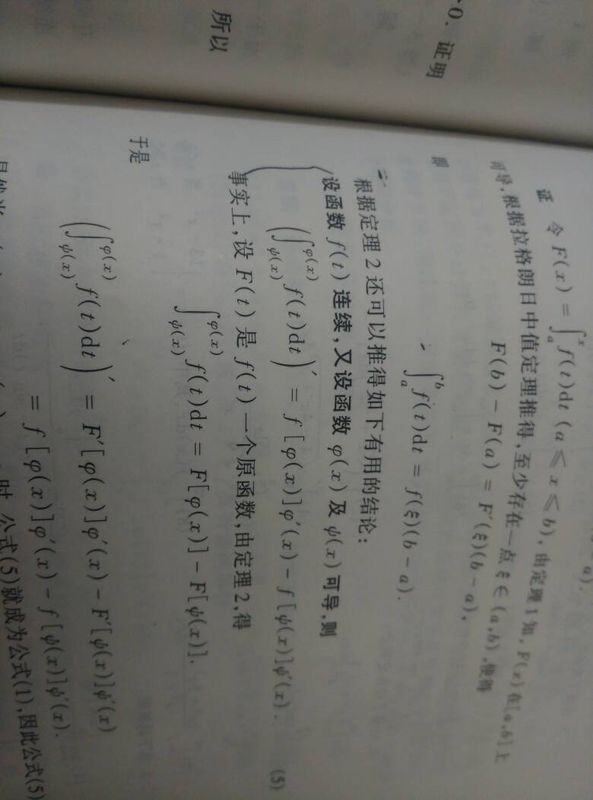 0. 证明
所以
a).
证 令 F(x) = ∫ₐˣ f(t)dt (a ⩽ x ⩽ b), 由定理 1 知, F(x) 在[a,b]上
可导,根据拉格朗日中值定理推得,至少存在一点 ξ ∈ (a,b),使得
F(b) − F(a) = F′(ξ)(b − a),
即
∫ₐᵇ f(t)dt = f(ξ)(b − a).
根据定理 2 还可以推得如下有用的结论:
设函数 f(t) 连续,又设函数 φ(x) 及 ψ(x) 可导,则
(∫_{ψ(x)}^{φ(x)} f(t)dt)′ = f[φ(x)]φ′(x) − f[ψ(x)]ψ′(x). (5)
事实上,设 F(t) 是 f(t) 一个原函数,由定理 2,得
∫_{ψ(x)}^{φ(x)} f(t)dt = F[φ(x)] − F[ψ(x)].
于是
(∫_{ψ(x)}^{φ(x)} f(t)dt)′ = F′[φ(x)]φ′(x) − F′[ψ(x)]ψ′(x)
= f[φ(x)]φ′(x) − f[ψ(x)]ψ′(x).
时 公式(5)就成为公式(1),因此公式(5)